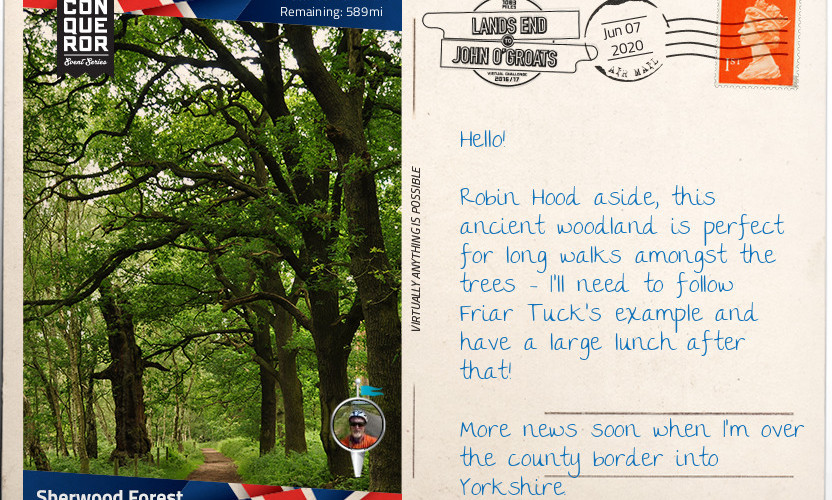 CON
QUE
ROR
Event Series
Remaining: 589mi
Sherwood Forest
VIRTUALLY ANYTHING IS POSSIBLE
MILES
LANDS END
TO
JOHN O'GROATS
VIRTUAL CHALLENGE
2016/17
Jun 07
2020
AIR MAIL
1st
Hello!
Robin Hood aside, this
ancient woodland is perfect
for long walks amongst the
trees - I'll need to follow
Friar Tuck's example and
have a large lunch after
that!
More news soon when I'm over
the county border into
Yorkshire